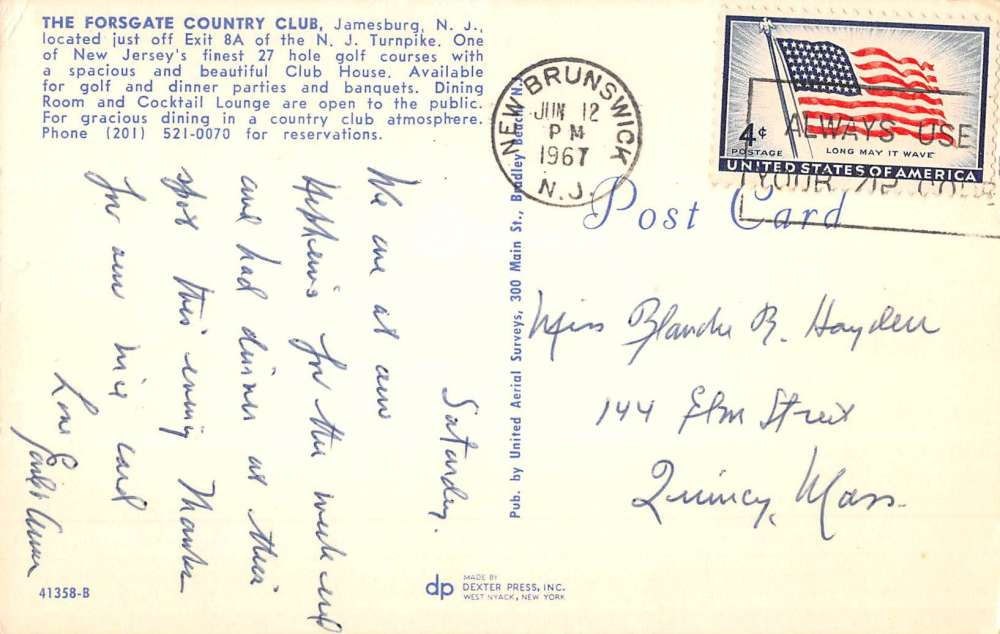 THE FORSGATE COUNTRY CLUB, Jamesburg, N. J.,
located just off Exit 8A of the N. J. Turnpike. One
of New Jersey's finest 27 hole golf courses with
a spacious and beautiful Club House. Available
for golf and dinner parties and banquets. Dining
Room and Cocktail Lounge are open to the public.
For gracious dining in a country club atmosphere.
Phone (201) 521-0070 for reservations.
Saturday.
We are at our
for the week end
and had dinner at this
spot this evening Thanks
for our nice card
Love
41358-B
Pub. by United Aerial Surveys, 300 Main St., Bradley Beach, N.
dp
MADE BY
DEXTER PRESS, INC.
WEST NYACK, NEW YORK
NEW BRUNSWICK
JUN 12
PM
1967
N.J.
4¢
POSTAGE
LONG MAY IT WAVE
UNITED STATES OF AMERICA
ALWAYS USE
YOUR ZIP CODE
Post Card
Miss Blanche B. Hayden
144 Elm Street
Quincy, Mass.